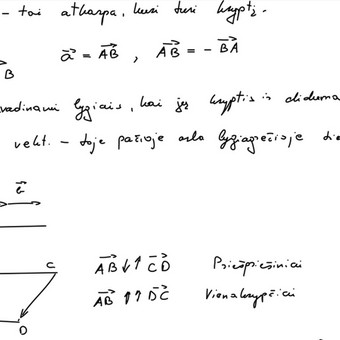 – tai atkarpa, kuri turi kryptį.
a⃗ = AB⃗ , AB⃗ = – BA⃗
B
vadinami lygiais, kai jų kryptis ir didum
vekt. – toje pačioje arba lygiagrečioje tie
C
AB⃗ ↓↑ CD⃗ Priešpriešiniai
AB⃗ ↑↑ DC⃗ Vienakrypčiai
D